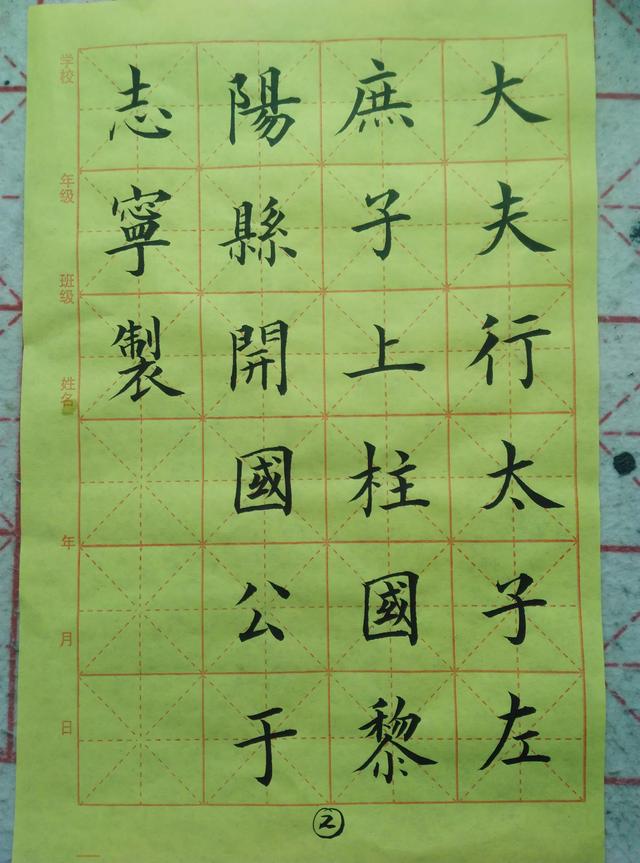 大夫行太子左
庶子上柱國黎
陽縣開國公于
志寧製
学校
年级
班级
姓名
年
月
日
②